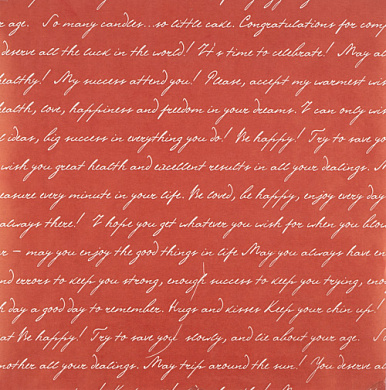 r age. So many candles...so little cake. Congratulations for comp
deserve all the luck in the world! It's time to celebrate! May al
healthy! My success attend you! Please, accept my warmest wis
health, love, happiness and freedom in your dreams. I can only wis
l ideas, big success in everything you do! Be happy! Try to save yo
wish you great health and excellent results in all your dealings. M
easure every minute in your life. Be loved, be happy, enjoy every day
always there! I hope you get whatever you wish for when you blow
r – may you enjoy the good things in life May you always have en
nd errors to keep you strong, enough success to keep you trying, enou
h day a good day to remember. Hugs and kisses Keep your chin up!
at Be happy! Try to save you slowly, and lie about your age. S
nother all your dealings. May trip around the sun! You deserve a